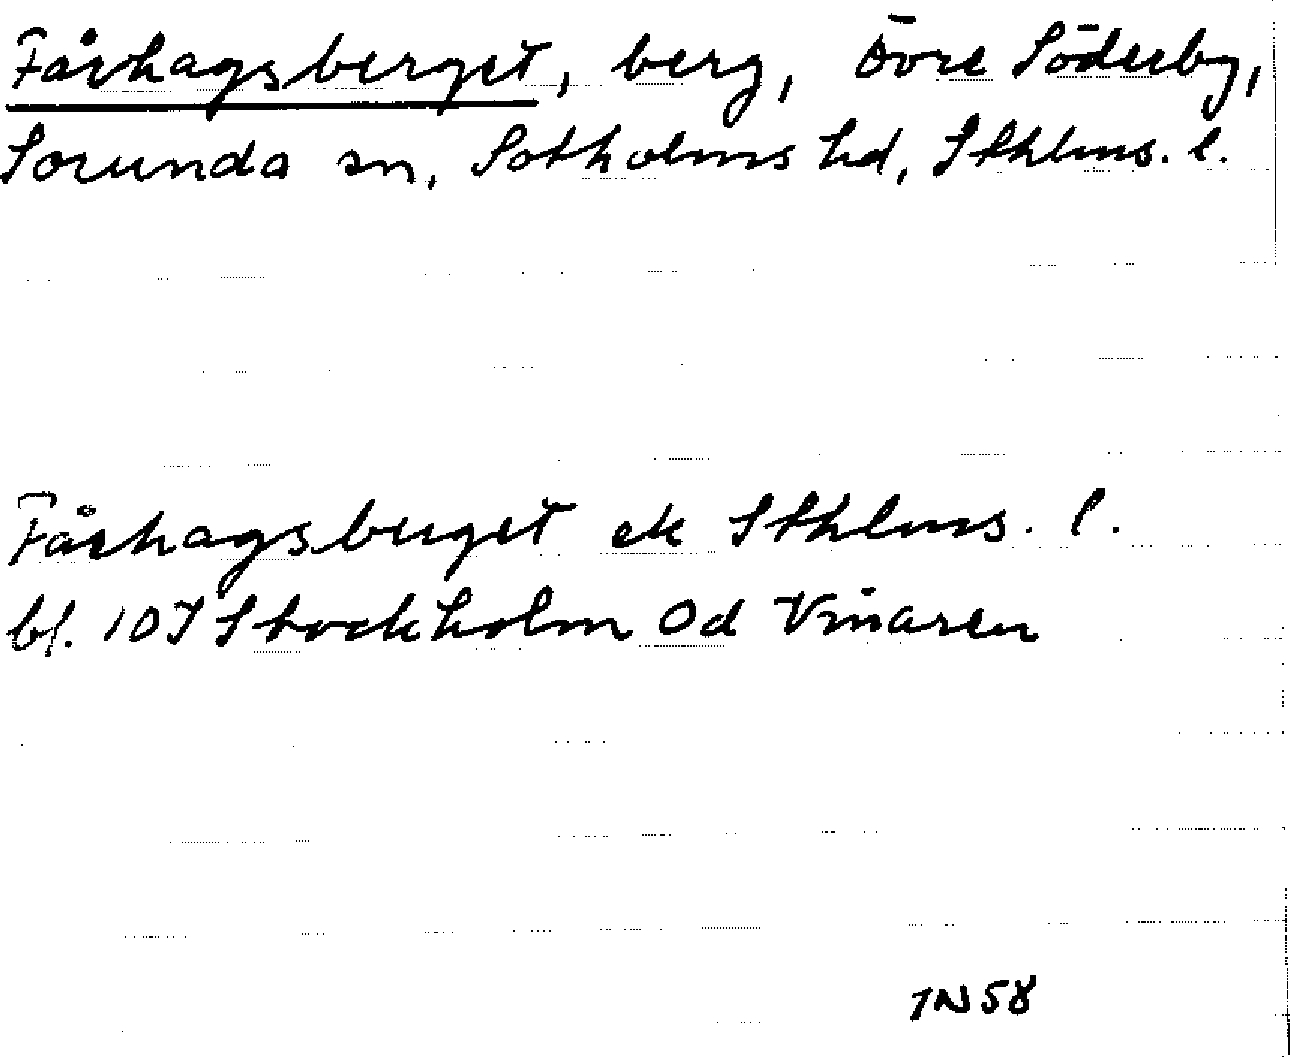 Fårhagsberget, berg, Övre Söderby,
Sorunda sn, Sotholms hd, Sthlms. l.
Fårhagsberget ek Sthlms. l.
bl. 10I Stockholm Od Vinaren
IN 58